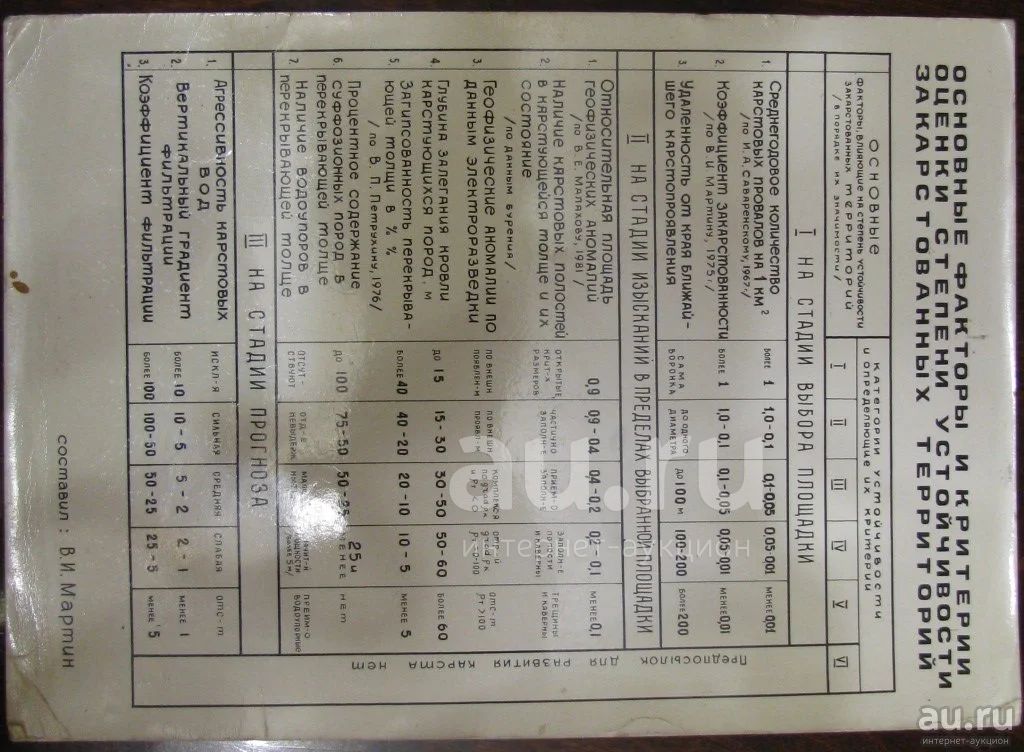 ОСНОВНЫЕ ФАКТОРЫ И КРИТЕРИИ
ОЦЕНКИ СТЕПЕНИ УСТОЙЧИВОСТИ
ЗАКАРСТОВАННЫХ ТЕРРИТОРИЙ
ОСНОВНЫЕ
ФАКТОРЫ, ВЛИЯЮЩИЕ НА СТЕПЕНЬ УСТОЙЧИВОСТИ
ЗАКАРСТОВАННЫХ ТЕРРИТОРИЙ
/ В ПОРЯДКЕ ИХ ЗНАЧИМОСТИ /
КАТЕГОРИИ УСТОЙЧИВОСТИ
И ОПРЕДЕЛЯЮЩИЕ ИХ КРИТЕРИИ
I II III IV V VI
I НА СТАДИИ ВЫБОРА ПЛОЩАДКИ
1. Среднегодовое количество
карстовых провалов на 1 км²
/по И.А. Саваренскому, 1967г./
БОЛЕЕ 1 1,0-0,1 0,1-0,05 0,05-001 МЕНЕЕ 0,01
2. Коэффициент закарстованности
/по В.И Мартину, 1975г./
БОЛЕЕ 1 1,0-0,1 0,1-0,05 0,05-0,01 МЕНЕЕ 0,01
3. Удаленность от края ближай-
шего карстопроявления
САМА ВОРОНКА ДО ОДНОГО ДИАМЕТРА ДО 100 М 100-200 БОЛЕЕ 200
II НА СТАДИИ ИЗЫСКАНИЙ В ПРЕДЕЛАХ ВЫБРАННОЙ ПЛОЩАДКИ
1. Относительная площадь
геофизических аномалий
/по В.Е. Малахову, 1981/
0,9 0,9-0,4 0,4-0,2 0,2-0,1 МЕНЕЕ 0,1
2. Наличие карстовых полостей
в карстующейся толще и их
состояние
/по данным бурения/
ОТКРЫТЫЕ РАЗМЕРОВ ЧАСТИЧНО ЗАПОЛН-Е ЗАПОЛН-Е ПОЛОСТИ И КАВЕРНЫ ТРЕЩИНЫ И КАВЕРНЫ
3. Геофизические аномалии по
данным электроразведки
ПО ВНЕШН ПРОЯВЛЕН-М ПО ВНЕШН ОТС-Т Рт>100
4. Глубина залегания кровли
карстующихся пород, м
ДО 15 15-30 30-50 50-60 БОЛЕЕ 60
5. Загипсованность перекрыва-
ющей толщи в %%
/по В.П. Петрухину, 1976/
БОЛЕЕ 40 40-20 20-10 10-5 МЕНЕЕ 5
6. Процентное содержание
суффозионных пород в
перекрывающей толще
ДО 100 75-50 50-25 25 и МЕНЕЕ НЕТ
7. Наличие водоупоров в
перекрывающей толще
ОТСУТ-СТВУЮТ ПРЕИМ-О ВОДОУПОРНЫЕ
III НА СТАДИИ ПРОГНОЗА
1. Агрессивность карстовых
вод
ИСКЛ-Я СИЛЬНАЯ СРЕДНЯЯ СЛАБАЯ ОТС-Т
2. Вертикальный градиент
фильтрации
БОЛЕЕ 10 10-5 5-2 2-1 МЕНЕЕ 1
3. Коэффициент фильтрации
БОЛЕЕ 100 100-50 50-25 25-5 МЕНЕЕ 5
ПРЕДПОСЫЛОК ДЛЯ РАЗВИТИЯ КАРСТА НЕТ
составил : В.И. Мартин
au.ru
интернет-аукцион
au.ru
интернет-аукцион